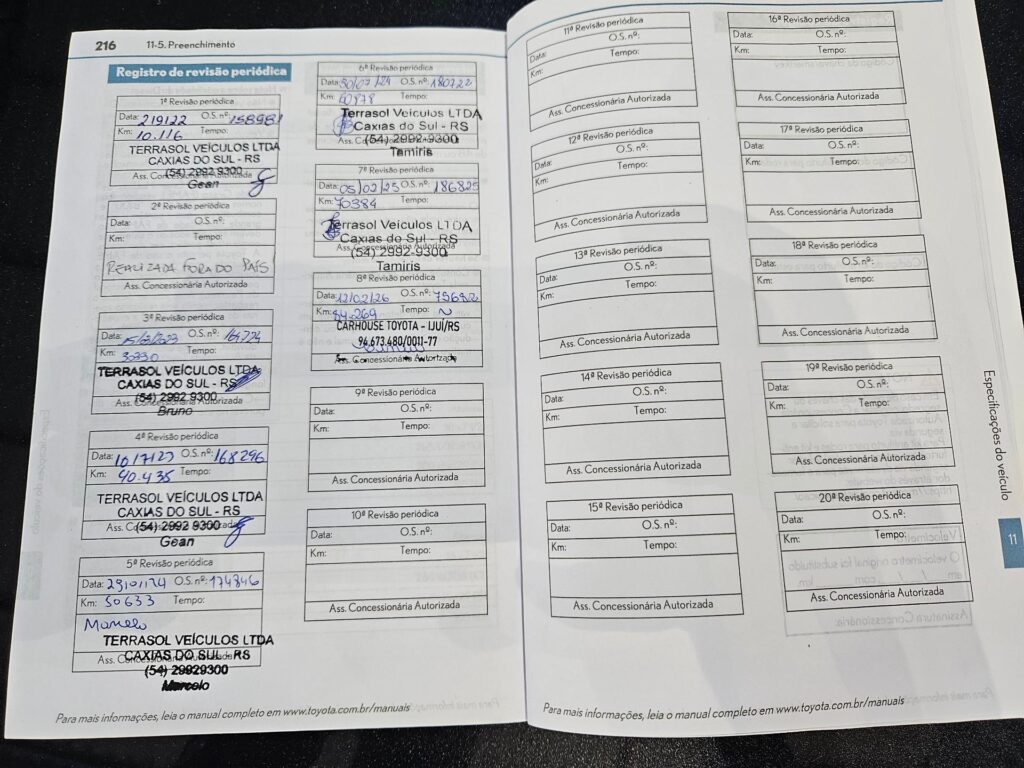 216 11-5. Preenchimento
Registro de revisão periódica
1ª Revisão periódica
Data: 219122 O.S. nº: 158981
Km: 10.116 Tempo:
TERRASOL VEÍCULOS LTDA
CAXIAS DO SUL - RS
(54) 2992 9300
Ass. Concessionária Autorizada
Gean
2ª Revisão periódica
Data: O.S. nº:
Km: Tempo:
REALIZADA FORA DO PAÍS
Ass. Concessionária Autorizada
3ª Revisão periódica
Data: O.S. nº:
Km: 30330 Tempo:
TERRASOL VEÍCULOS LTDA
CAXIAS DO SUL - RS
(54) 2992 9300
Ass. Concessionária Autorizada
Bruno
4ª Revisão periódica
Data: 10/7/23 O.S. nº: 168296
Km: 40.435 Tempo:
TERRASOL VEÍCULOS LTDA
CAXIAS DO SUL - RS
(54) 2992 9300
Ass. Concessionária Autorizada
Gean
5ª Revisão periódica
Data: 29/01/24 O.S. nº: 174846
Km: 50633 Tempo:
Marcelo
TERRASOL VEÍCULOS LTDA
CAXIAS DO SUL - RS
Ass. Concessionária Autorizada
(54) 29929300
Marcelo
6ª Revisão periódica
Data: 30/07/24 O.S. nº: 180722
Km: 60878 Tempo:
Terrasol Veículos LTDA
Caxias do Sul - RS
(54) 2992-9300
Ass. Concessionária Autorizada
Tamiris
7ª Revisão periódica
Data: 05/02/25 O.S. nº: 186825
Km: 70384 Tempo:
Terrasol Veículos LTDA
Caxias do Sul - RS
Ass. Concessionária Autorizada
(54) 2992-9300
Tamiris
8ª Revisão periódica
Data: 12/02/26 O.S. nº: 79682
Km: 84.269 Tempo: ~
CARHOUSE TOYOTA - IJUÍ/RS
94.673.480/0011-77
Ass. Concessionária Autorizada
9ª Revisão periódica
Data: O.S. nº:
Km: Tempo:
Ass. Concessionária Autorizada
10ª Revisão periódica
Data: O.S. nº:
Km: Tempo:
Ass. Concessionária Autorizada
Para mais informações, leia o manual completo em www.toyota.com.br/manuais
11ª Revisão periódica
Data: O.S. nº:
Km: Tempo:
Ass. Concessionária Autorizada
12ª Revisão periódica
Data: O.S. nº:
Km: Tempo:
Ass. Concessionária Autorizada
13ª Revisão periódica
Data: O.S. nº:
Km: Tempo:
Ass. Concessionária Autorizada
14ª Revisão periódica
Data: O.S. nº:
Km: Tempo:
Ass. Concessionária Autorizada
15ª Revisão periódica
Data: O.S. nº:
Km: Tempo:
Ass. Concessionária Autorizada
16ª Revisão periódica
Data: O.S. nº:
Km: Tempo:
Ass. Concessionária Autorizada
17ª Revisão periódica
Data: O.S. nº:
Km: Tempo:
Ass. Concessionária Autorizada
18ª Revisão periódica
Data: O.S. nº:
Km: Tempo:
Ass. Concessionária Autorizada
19ª Revisão periódica
Data: O.S. nº:
Km: Tempo:
Ass. Concessionária Autorizada
20ª Revisão periódica
Data: O.S. nº:
Km: Tempo:
Ass. Concessionária Autorizada
Especificações do veículo
11
Para mais informações, leia o manual completo em www.toyota.com.br/manuais